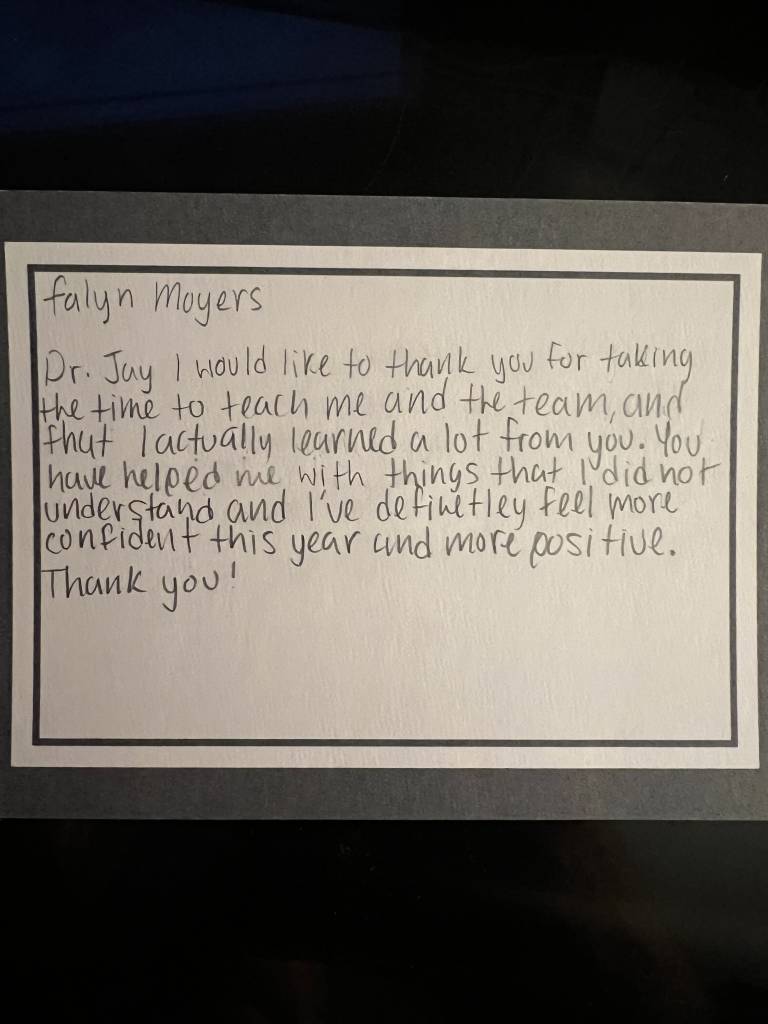 falyn Moyers
Dr. Jay I would like to thank you for taking
the time to teach me and the team, and
that I actually learned a lot from you. You
have helped me with things that I did not
understand and I've definetley feel more
confident this year and more positive.
Thank you!